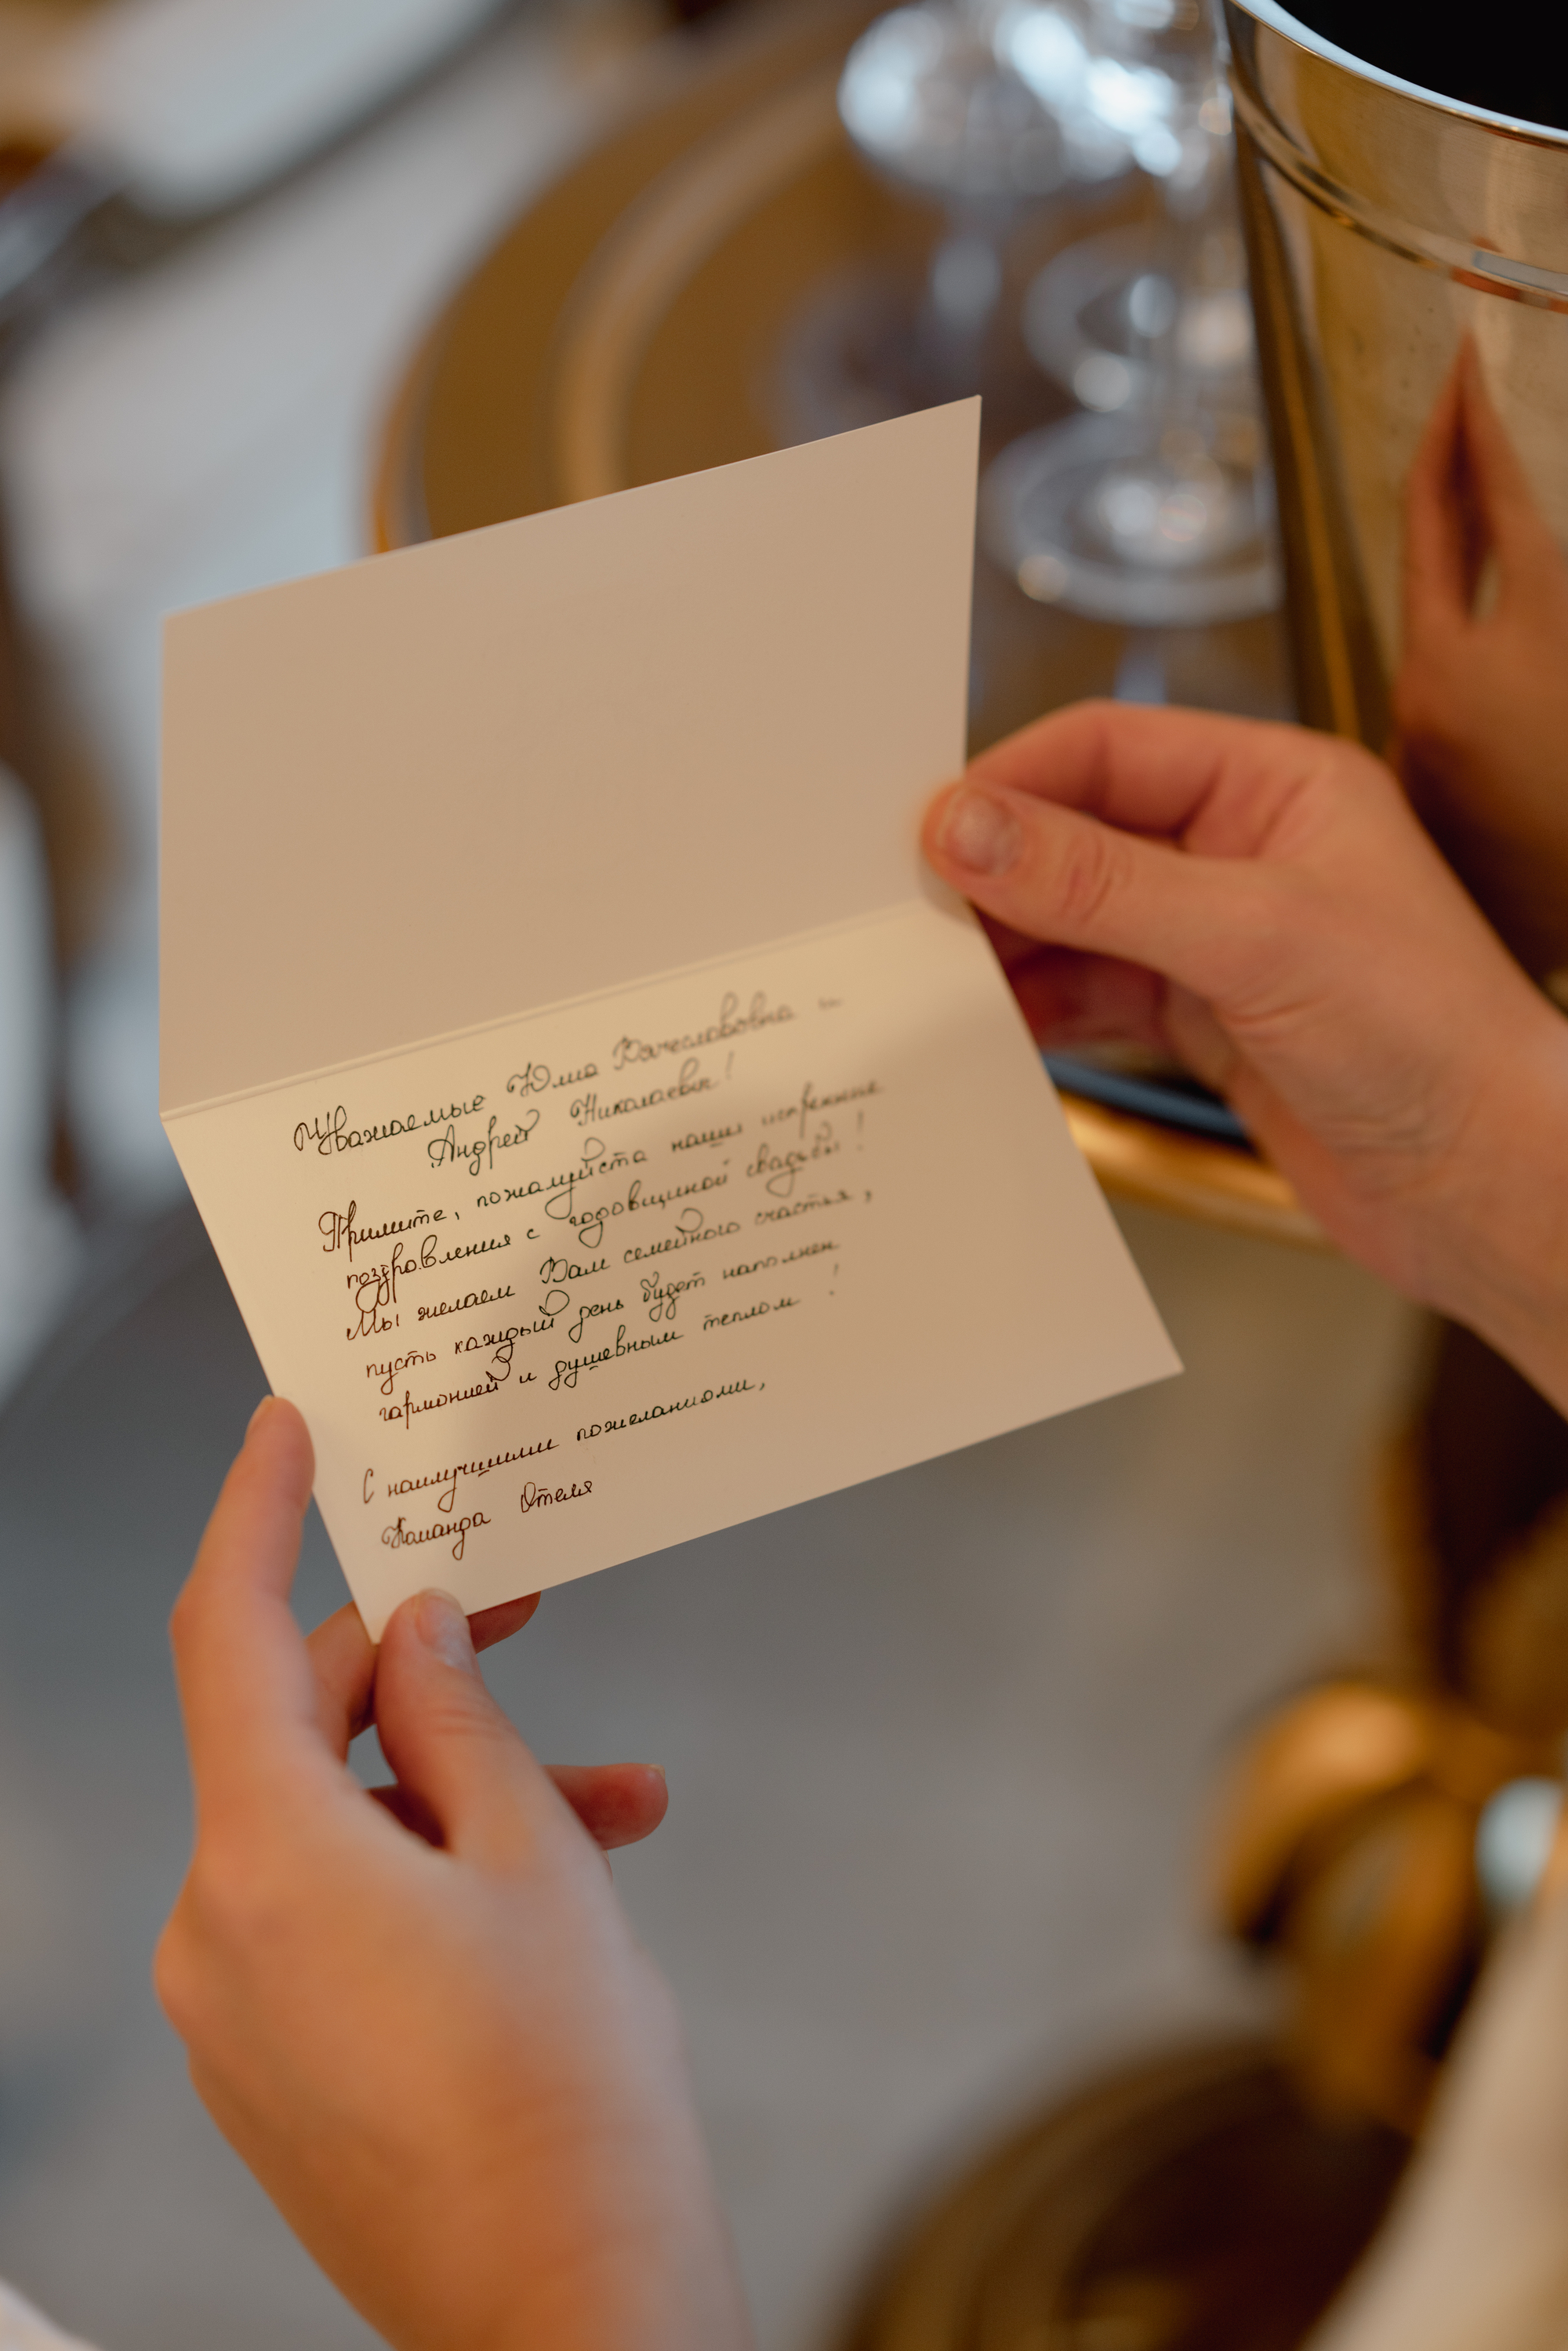 Уважаемые Юлия Вячеславовна и
Андрей Николаевич!
Примите, пожалуйста наши искренние
поздравления с годовщиной свадьбы!
Мы желаем Вам семейного счастья,
пусть каждый день будет наполнен
гармонией и душевным теплом!
С наилучшими пожеланиями,
Команда Отеля